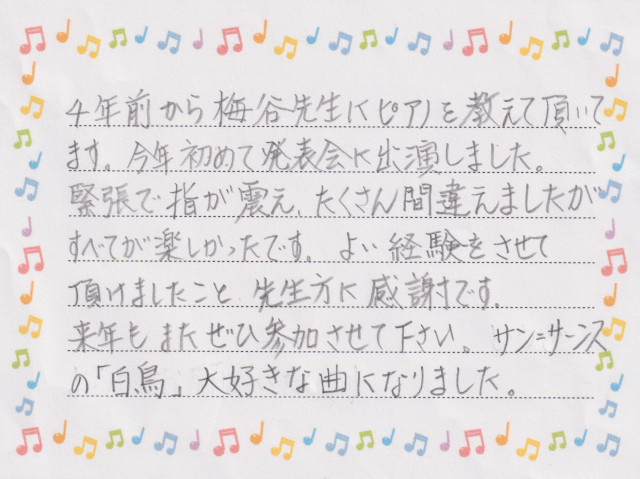 4年前から梅谷先生にピアノを教えて頂いて
ます。今年初めて発表会に出演しました。
緊張で指が震え、たくさん間違えましたが
すべてが楽しかったです。よい経験をさせて
頂けましたこと、先生方に感謝です。
来年もまたぜひ参加させて下さい。サン=サーンス
の「白鳥」大好きな曲になりました。